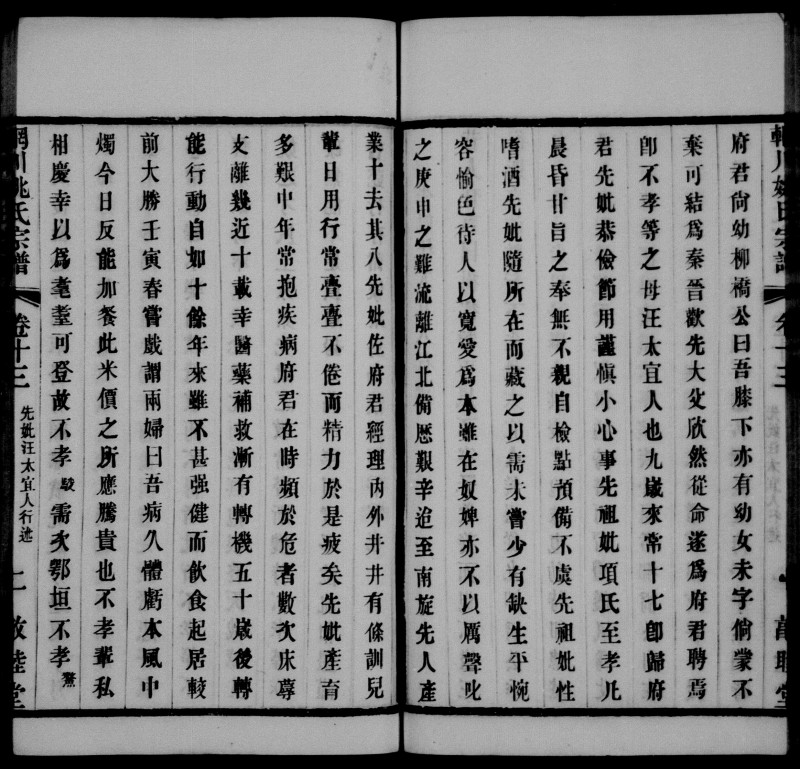 府君尙幼柳橋公曰吾膝下亦有幼女未字倘蒙不
棄可結爲秦晉歡先大父欣然從命遂爲府君聘焉
卽不孝等之母汪太宜人也九歲來常十七卽歸府
君先妣恭儉節用謹愼小心事先祖妣項氏至孝凡
晨昏甘旨之奉無不親自檢點預備不虞先祖妣性
嗜酒先妣隨所在而藏之以需未嘗少有缺生平惋
容愉色待人以寬愛爲本雖在奴婢亦不以厲聲叱
之庚申之難流離江北備歷艱辛迨至南旋先人產
業十去其八先妣佐府君經理內外井井有條訓兒
輩日用行常亹亹不倦而精力於是疲矣先妣產育
多艱中年常抱疾病府君在時頻於危者數次床蓐
支離幾近十載幸醫藥補救漸有轉機五十歲後轉
能行動自如十餘年來雖不甚强健而飮食起居較
前大勝壬寅春嘗戲謂兩婦曰吾病久體虧本風中
燭今日反能加餐此米價之所應騰貴也不孝輩私
相慶幸以爲耄耋可登故不孝駿需次鄂垣不孝
輞川姚氏宗譜 卷十三 先妣汪太宜人行述 二 敘睦堂